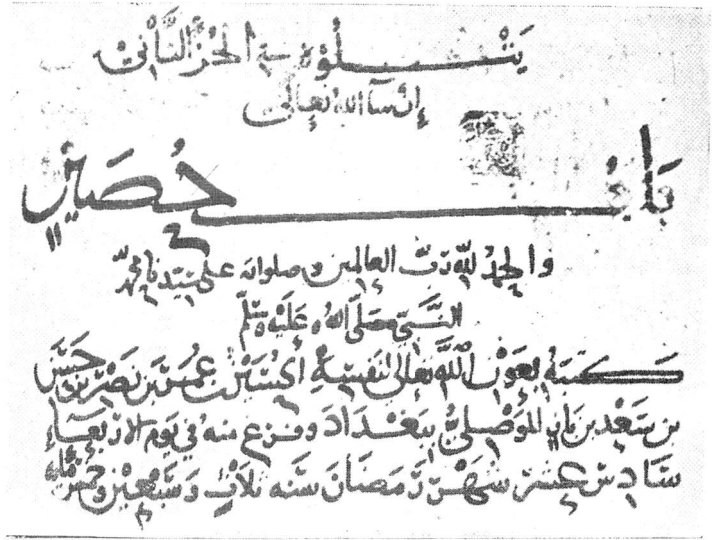 يتلوه في الجزء الثاني
إن شاء الله تعالى
باب حصين
والحمد لله رب العالمين وصلواته على سيدنا محمد
النبي صلى الله عليه وسلم
كتبه بعون الله تعالى لنفسه الحسين بن عمر بن نصر بن حسن
بن سعد بن باز الموصلي ببغداد وفرغ منه في يوم الاربعاء
سادس عشر شهر رمضان سنه ثلاث وسبعين وخمس مائة